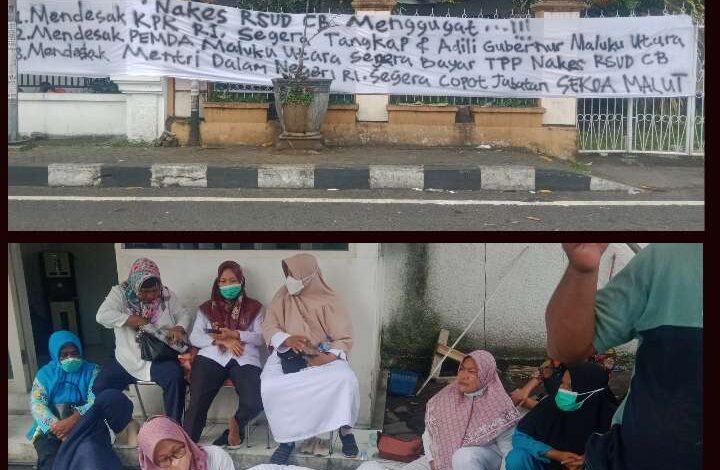 "Nakes RSUD CB Menggugat...!!!
1. Mendesak KPK RI. Segera Tangkap & Adili Gubernur Maluku Utara
2. Mendesak PEMDA Maluku Utara Segera Bayar TPP Nakes RSUD CB
3. Mendesak Mentri Dalam Negeri RI. Segera Copot Jabatan SEKDA MALUT